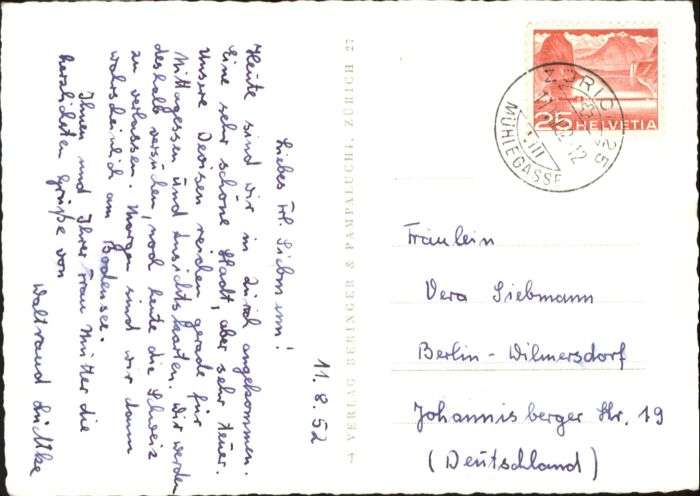 11.8.52
Liebes Frl. Siebmann!
Heute sind wir in Zürich angekommen.
Eine sehr schöne Stadt, aber sehr teuer.
Unsere Devisen reichen gerade für
Mittagessen und Ansichtskarten. Wir werden
deshalb versuchen, noch heute die Schweiz
zu verlassen. Morgen sind wir dann
wahrscheinlich am Bodensee.
Ihnen und Ihrer Frau Mutter die
herzlichsten Grüße von
Waltraud Lüttke
VERLAG BERINGER & PAMPALUCHI, ZÜRICH 27
ZÜRICH 25
MÜHLEGASSE
25 HELVETIA
Fräulein
Vera Siebmann
Berlin-Wilmersdorf
Johannisberger Str. 19
(Deutschland)